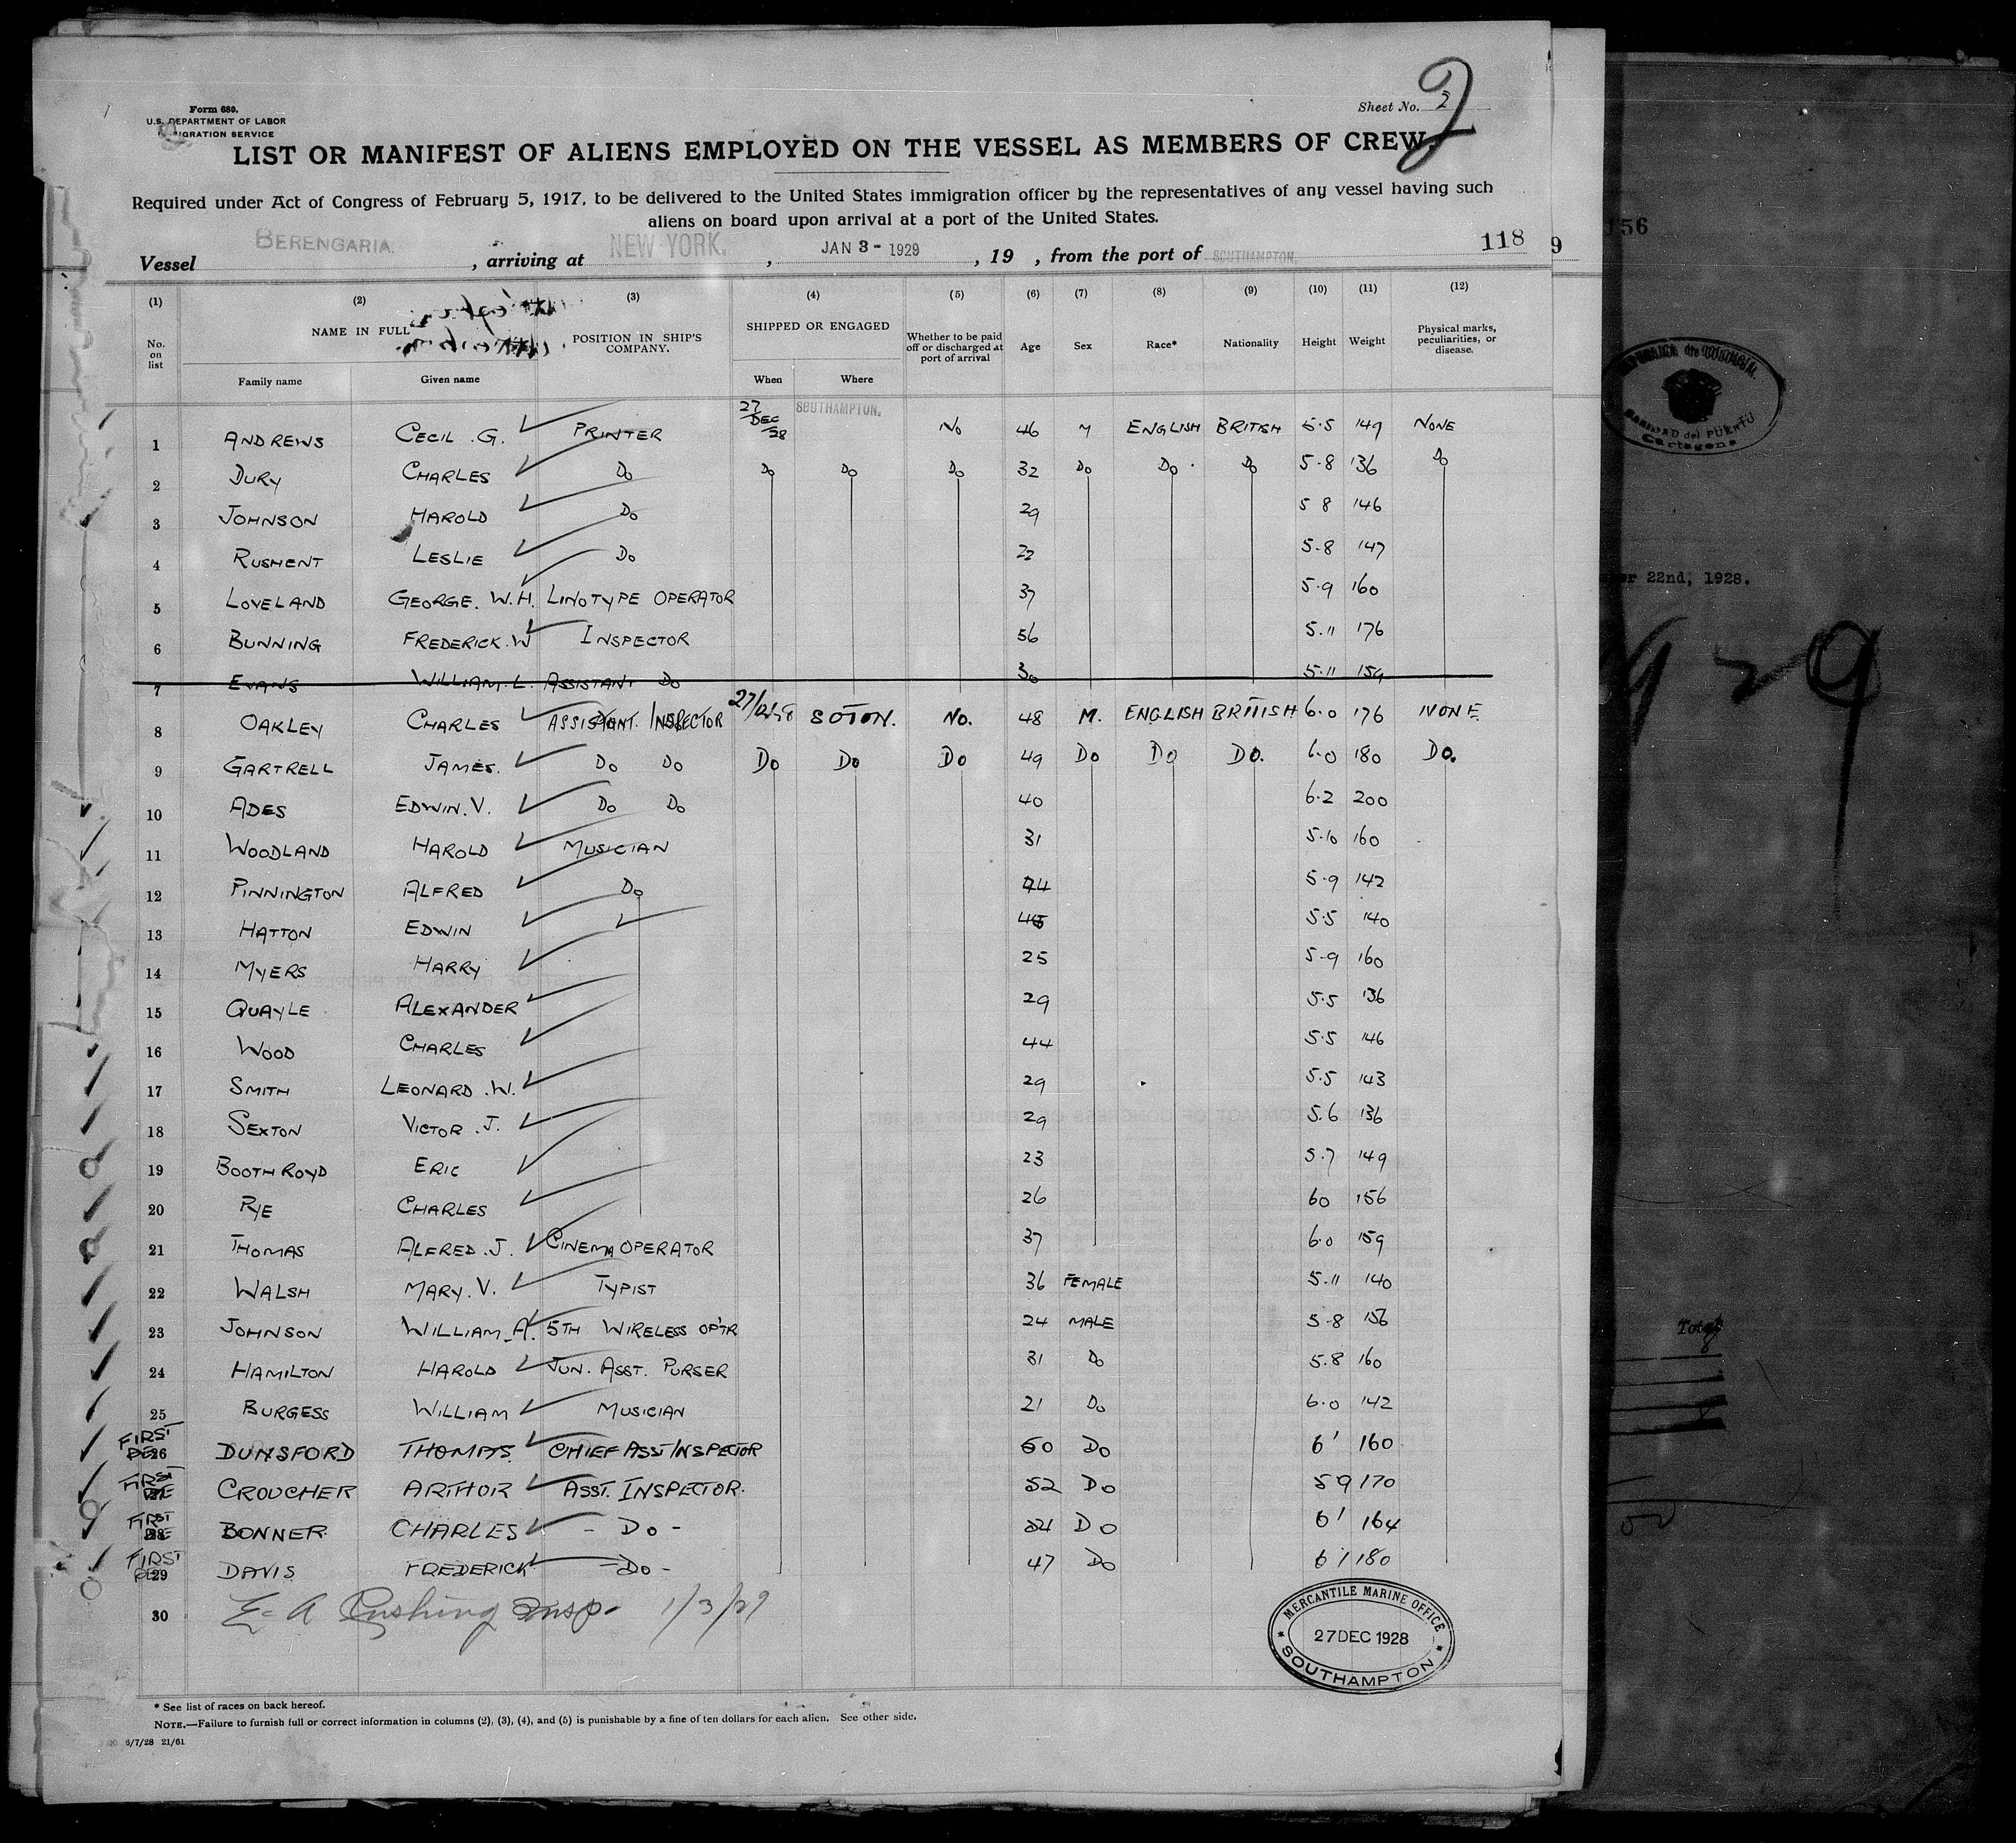 Form 680.
U.S. DEPARTMENT OF LABOR
IMMIGRATION SERVICE
Sheet No. 2
2
LIST OR MANIFEST OF ALIENS EMPLOYED ON THE VESSEL AS MEMBERS OF CREW.
Required under Act of Congress of February 5, 1917, to be delivered to the United States immigration officer by the representatives of any vessel having such
aliens on board upon arrival at a port of the United States.
118
Vessel BERENGARIA. , arriving at NEW YORK. , JAN 3 - 1929 , 19 , from the port of SOUTHAMPTON.
(1) (2) (3) (4) (5) (6) (7) (8) (9) (10) (11) (12)
No. on list NAME IN FULL POSITION IN SHIP'S COMPANY. SHIPPED OR ENGAGED Whether to be paid off or discharged at port of arrival Age Sex Race* Nationality Height Weight Physical marks, peculiarities, or disease.
Family name Given name When Where
1 ANDREWS CECIL .G. PRINTER 27 DEC /28 SOUTHAMPTON. NO 46 M ENGLISH BRITISH 5.5 149 NONE
2 DURY CHARLES DO DO DO DO 32 DO DO DO 5-8 136 DO
3 JOHNSON HAROLD DO 29 5 8 146
4 RUSHENT LESLIE DO 22 5-8 147
5 LOVELAND GEORGE. W.H. LINOTYPE OPERATOR 37 5-9 160
6 BUNNING FREDERICK.W INSPECTOR 56 5.11 176
7 EVANS WILLIAM.L. ASSISTANT DO 30 5.11 159
8 OAKLEY CHARLES ASSISTANT. INSPECTOR 27/12/28 SOTON. NO. 48 M. ENGLISH BRITISH 6.0 176 NONE
9 GARTRELL JAMES. DO DO DO DO DO 49 DO DO DO. 6.0 180 DO.
10 ADES EDWIN.V. DO DO 40 6.2 200
11 WOODLAND HAROLD MUSICIAN 31 5.10 160
12 PINNINGTON ALFRED DO 44 5-9 142
13 HATTON EDWIN 45 5.5 140
14 MYERS HARRY 25 5-9 160
15 QUAYLE ALEXANDER 29 5.5 136
16 WOOD CHARLES 44 5.5 146
17 SMITH LEONARD .W. 29 5.5 143
18 SEXTON VICTOR .J. 29 5.6 136
19 BOOTHROYD ERIC 23 5.7 149
20 RYE CHARLES 26 60 156
21 THOMAS ALFRED .J. CINEMA OPERATOR 37 6.0 159
22 WALSH MARY. V. TYPIST 36 FEMALE 5.11 140
23 JOHNSON WILLIAM_A. 5TH WIRELESS OP'TR 24 MALE 5-8 156
24 HAMILTON HAROLD JUN. ASST. PURSER 31 DO 5.8 160
25 BURGESS WILLIAM MUSICIAN 21 DO 6.0 142
FIRST 26 DUNSFORD THOMAS. CHIEF ASST INSPECTOR 50 DO 6' 160
FIRST CROUCHER ARTHUR ASST. INSPECTOR. 52 DO 59 170
FIRST 28 BONNER CHARLES - DO - DO 6' 164
FIRST 29 DAVIS FREDERICK - DO - 47 DO 6 1 180
30 E. A Cushing Insp. 1/3/29
MERCANTILE MARINE OFFICE
27 DEC 1928
SOUTHAMPTON
* See list of races on back hereof.
NOTE.—Failure to furnish full or correct information in columns (2), (3), (4), and (5) is punishable by a fine of ten dollars for each alien. See other side.
6/7/28 21/61
9
56
SANIDAD del PUERTO
Cartagena
22nd, 1928.
929
Total